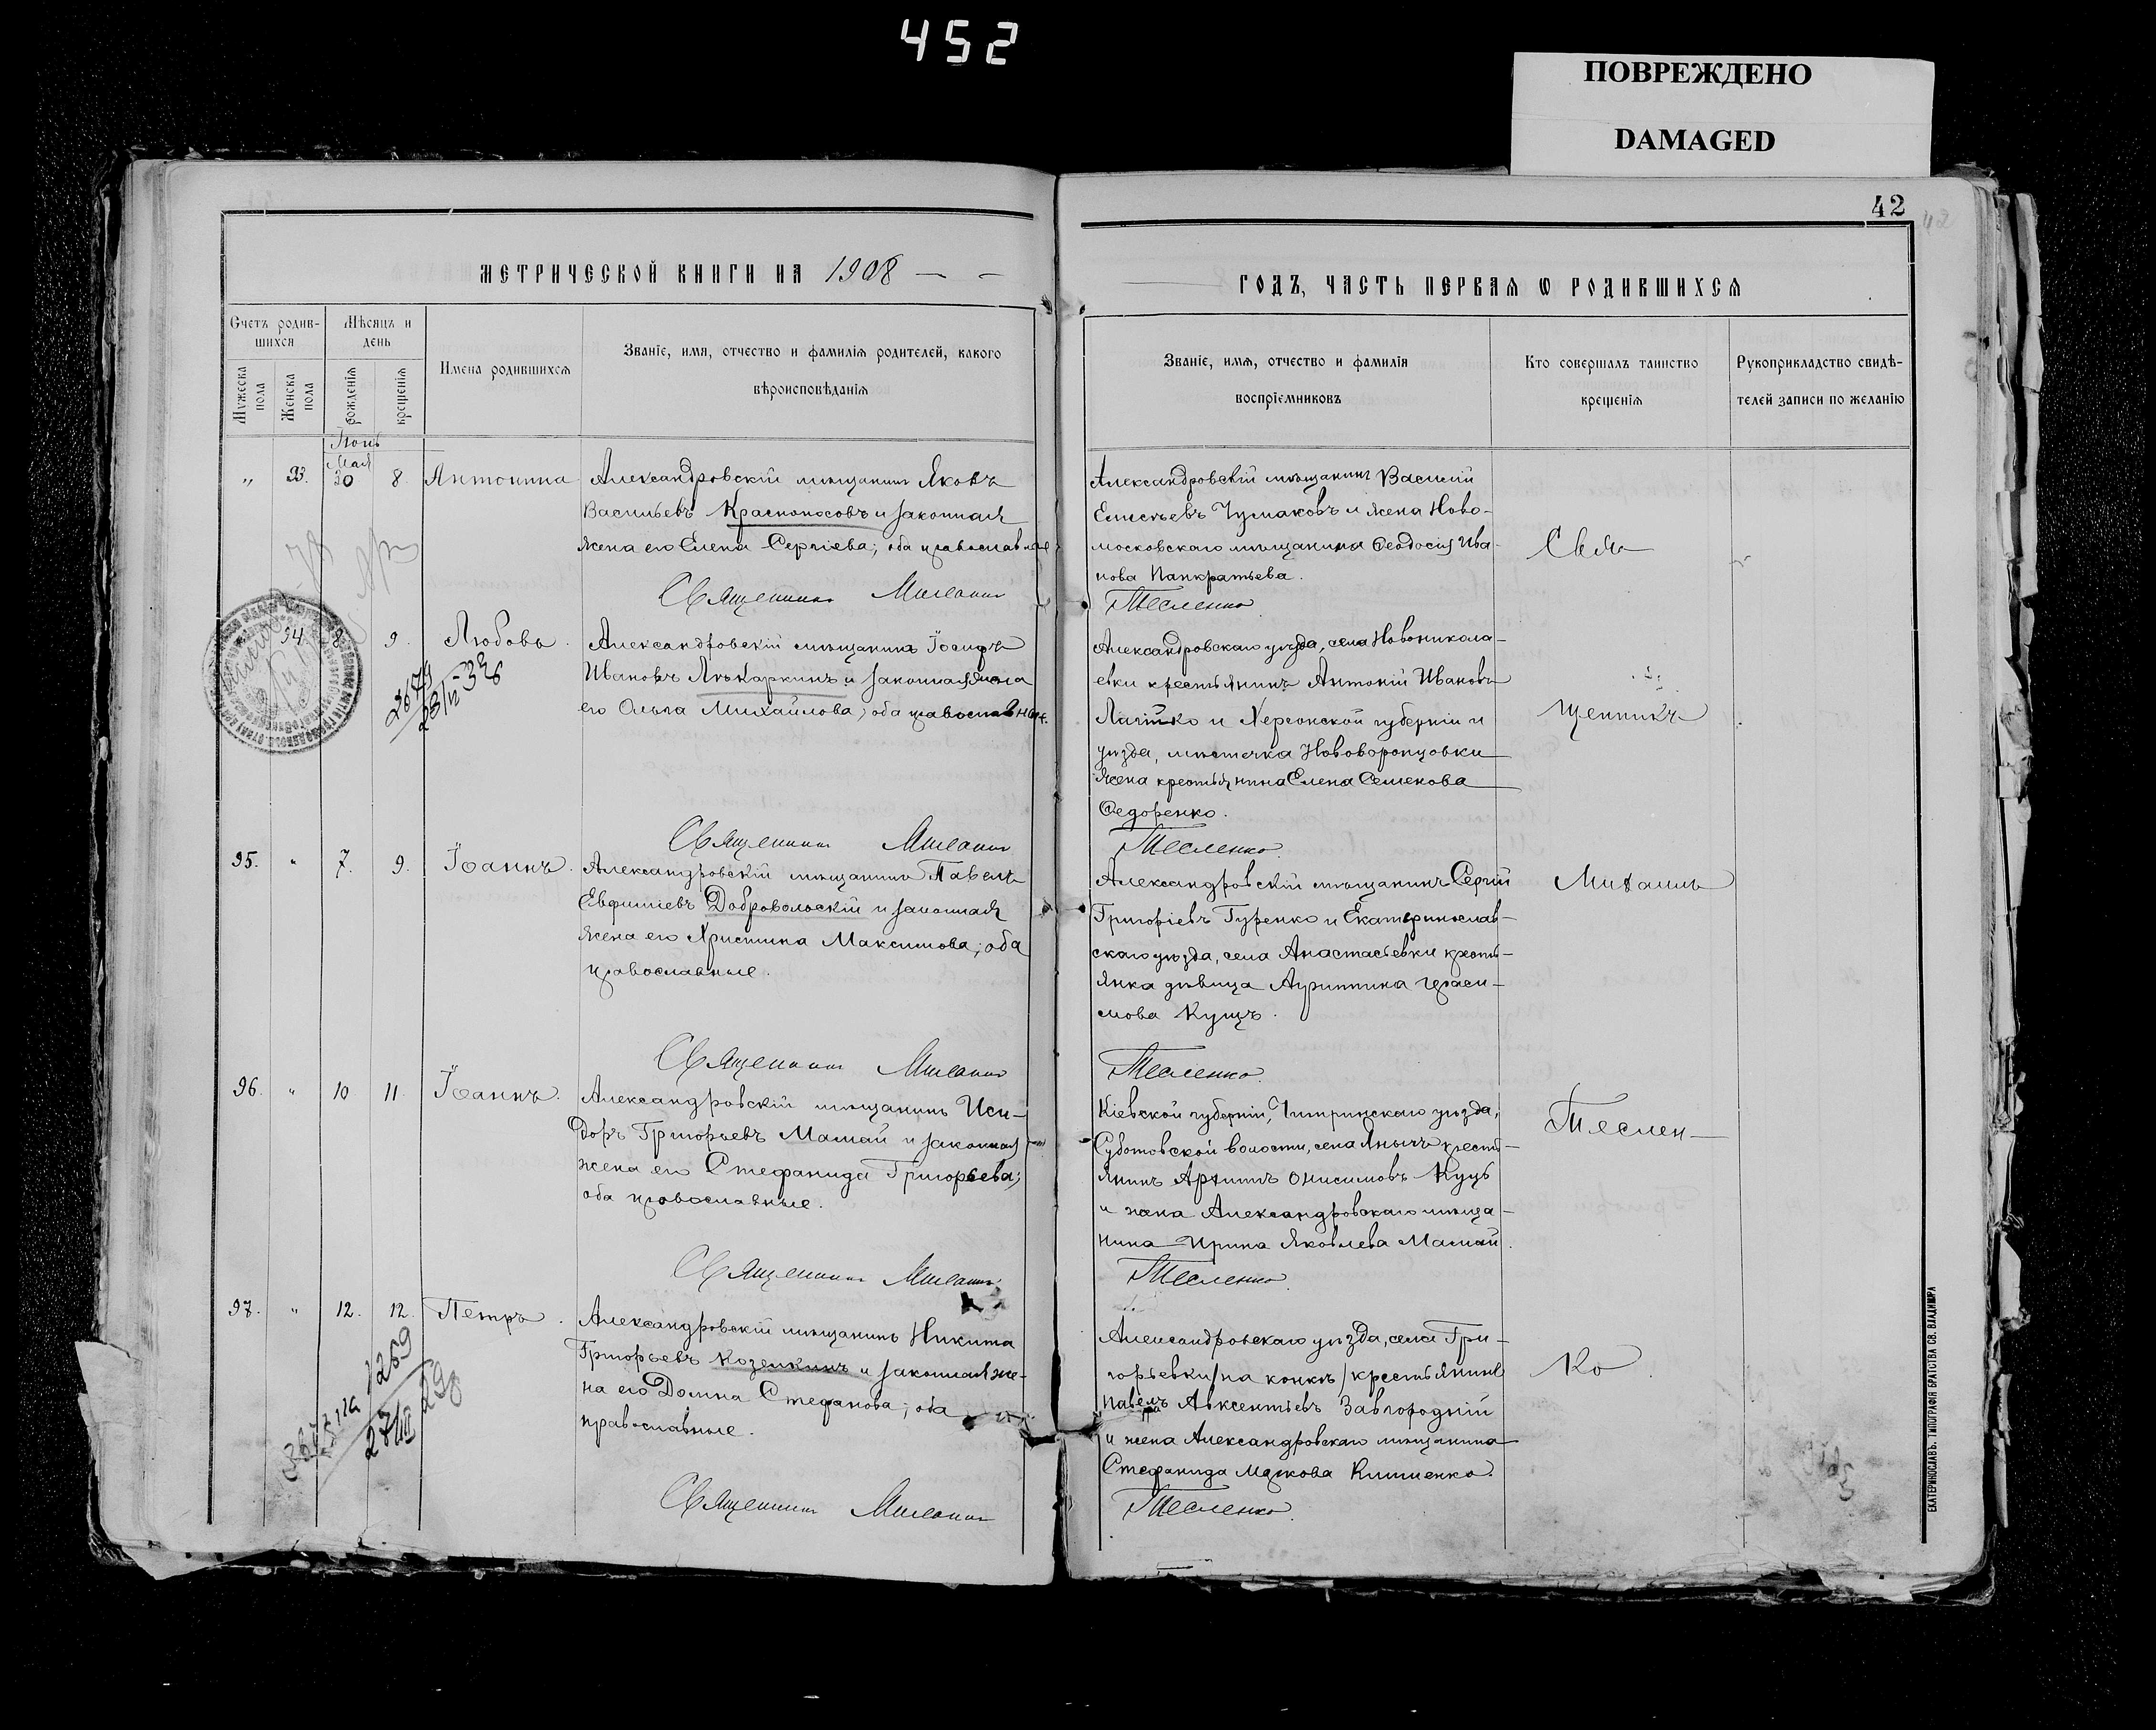 452
ПОВРЕЖДЕНО
DAMAGED
42
42
МЕТРИЧЕСКОЙ КНИГИ НА 1908
ГОДЪ, ЧАСТЬ ПЕРВАЯ Ѡ РОДИВШИХСЯ
Счетъ родив-
шихся
Мѣсяцъ и
день
Мужеска
пола
Женска
пола
рожденія
крещенія
Имена родившихся
Званіе, имя, отчество и фамилія родителей, какого
вѣроисповѣданія
Званіе, имя, отчество и фамилія
воспріемниковъ
Кто совершалъ таинство
крещенія
Рукоприкладство свидѣ-
телей записи по желанію
Іюнь
Мая
„ 93. 30 8. Антонина
Александровскій мѣщанинъ Яковъ
Васильевъ Красноносовъ и законная
жена его Елена Сергіева; оба православные
Священникъ
Александровскій мѣщанинъ Василій
Елисеевъ Чумаковъ и жена Ново-
московскаго мѣщанина Ѳеодосія Ива-
нова Панкратьева.
Тесленко
Свя-
94. 8. 9. Любовь.
Александровскій мѣщанинъ Іосифъ
Ивановъ Лѣкаркинъ и законная жена
его Ольга Михайлова; оба православные.
Священникъ
3679
Александровскаго уѣзда, села Новоникола-
евки крестьянинъ Антоній Ивановъ
и Херсонской губерніи и
уѣзда, мѣстечка Нововоронцовки
жена крестьянина Елена Семенова
Ѳедоренко.
Тесленко.
щенникъ
95. „ 7. 9. Іоаннъ.
Александровскій мѣщанинъ Павелъ
Евфиміевъ Добровольскій и законная
жена его Христина Максимова; оба
православные.
Священникъ
Александровскій мѣщанинъ Сергій
Григоріевъ Гуренко и Екатеринослав-
скаго уѣзда, села Анастасьевки кресть-
янка дѣвица Агриппина Гераси-
мова Кущъ.
Тесленко.
Михаилъ
96. „ 10 11. Іоаннъ.
Александровскій мѣщанинъ Иси-
доръ Григорьевъ Мамай и законная
жена его Стефанида Григорьева;
оба православные.
Священникъ
Кіевской губерніи, Чигиринскаго уѣзда,
Суботовской волости, села Янычъ кресть-
янинъ Архипъ Онисимовъ Куцъ
и жена Александровскаго мѣща-
нина Ирина Яковлева Мамай.
Тесленко
Теслен-
97. „ 12. 12. Петръ.
Александровскій мѣщанинъ Никита
Григорьевъ Козелкинъ и законная же-
на его Домна Стефанова; оба
православные.
Священникъ
1269
27/III
Александровскаго уѣзда, села Гри-
горьевки /на конкѣ/ крестьянинъ
Павелъ Авксентьевъ Завгородній
и жена Александровскаго мѣщанина
Стефанида Маркова Клименко.
Тесленко.
Ко
ЕКАТЕРИНОСЛАВЪ. ТИПОГРАФІЯ БРАТСТВА СВ. ВЛАДИМІРА